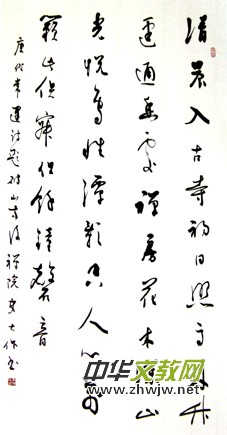 清晨入古寺初日照高林竹
迳通幽處禅房花木深山
光悦鸟性潭影空人心萬
籁此俱寂但餘鐘磬音
唐代常建诗题破山寺後禅院
中华文教网
www.zhwjw.net